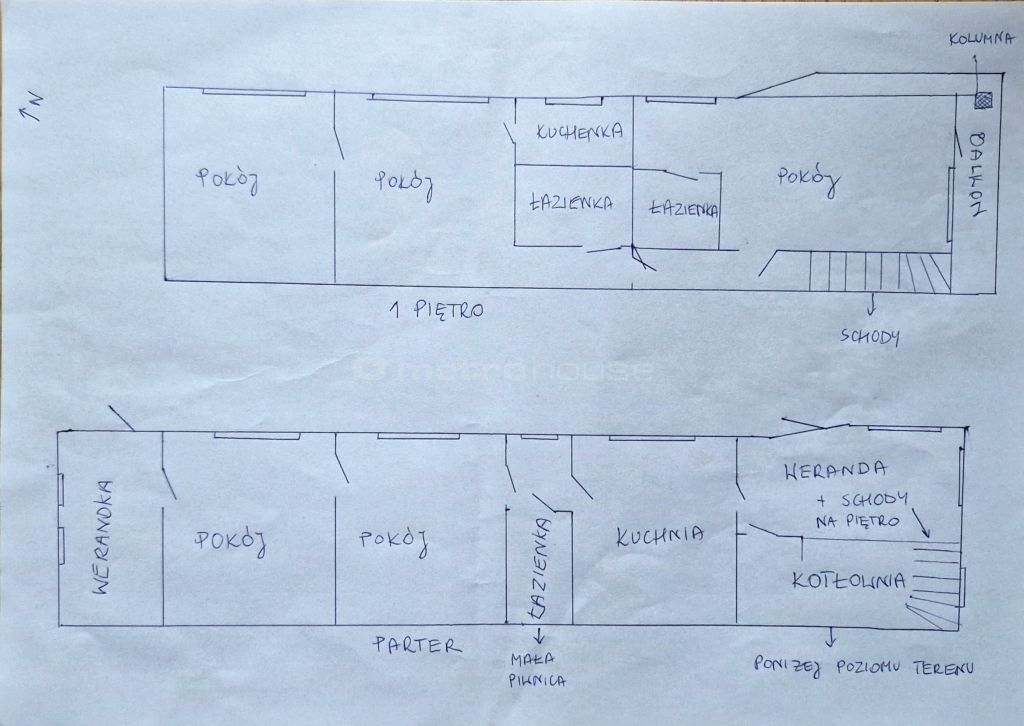 KOLUMNA
N
KUCHENKA
POKÓJ
POKÓJ
ŁAZIENKA
ŁAZIENKA
POKÓJ
BALKON
1 PIĘTRO
SCHODY
metrohouse
WERANDKA
POKÓJ
POKÓJ
ŁAZIENKA
KUCHNIA
WERANDA
+ SCHODY
NA PIĘTRO
KOTŁOWNIA
PARTER
MAŁA
PIWNICA
PONIŻEJ POZIOMU TERENU